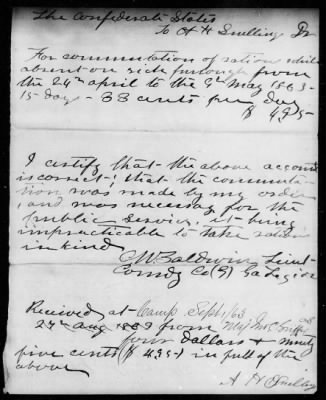 The Confederate States
To A H Snelling Dr
For commutation of ration while
absent on sick furlough from
the 24th april to the 9th May 1863 -
15 days - 33 cents per day
$ 495
I certify that the above account
is correct; that the commuta-
tion was made by my order
, and was necessary for the
public service; it being
impracticable to take rations
in kind
Baldwin Lieut
Comdg Co (G) Ga Legion
Received at Camp Sept 1/63
27th aug 1863 from Maj Jno.
four dollars & ninety
five cents ($ 4.95) in full of the
above
A H Snelling